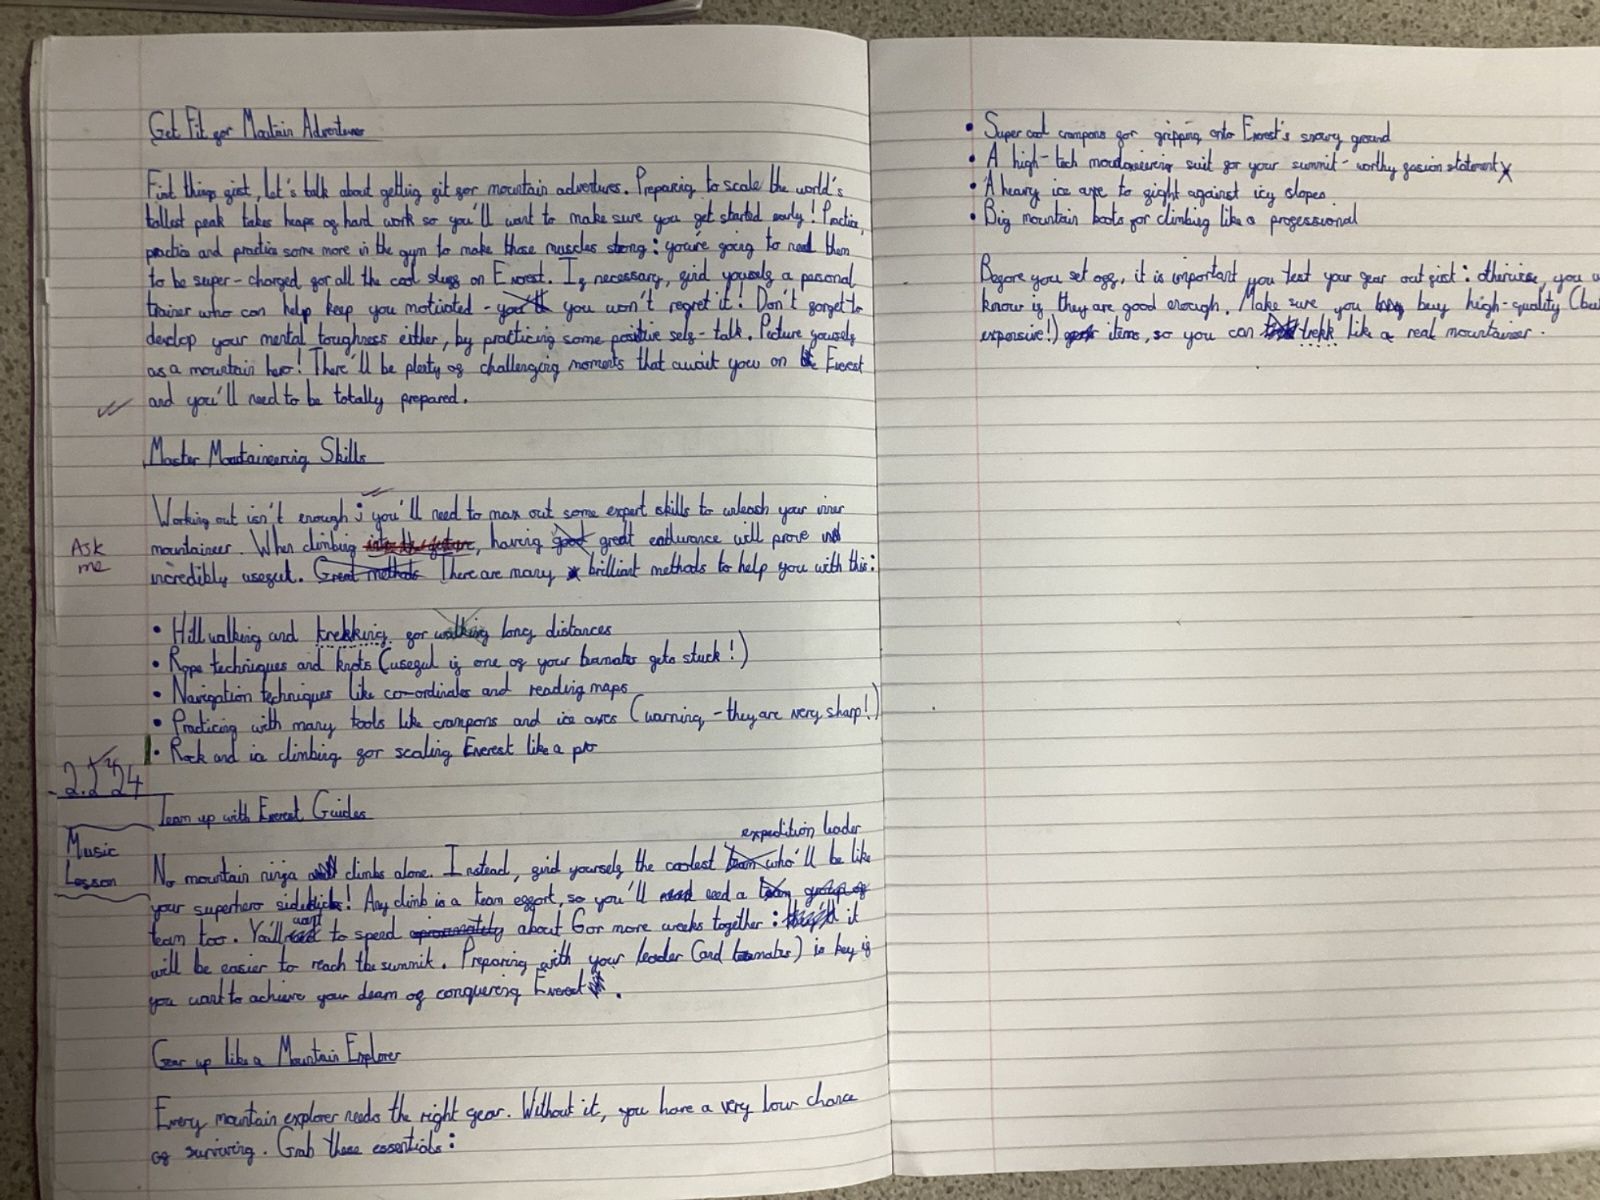 Get Fit for Moutain Adventures
First things first, let's talk about getting fit for mountain adventures. Preparing to scale the world's
tallest peak takes heaps of hard work so you'll want to make sure you get started early! Practice,
practice and practice some more in the gym to make those muscles strong: you're going to need them
to be super-charged for all the cool stuff on Everest. If necessary, find yourself a personal
trainer who can help keep you motivated - you won't regret it! Don't forget to
develop your mental toughness either, by practicing some positive self-talk. Picture yourself
as a mountain hero! There'll be plenty of challenging moments that await you on Everest
and you'll need to be totally prepared.
Master Moutaineering Skills
Working out isn't enough; you'll need to max out some expert skills to unleash your inner
Ask
me
mountaineer. When climbing, having great endurance will prove
incredibly useful. There are many brilliant methods to help you with this:
• Hill walking and trekking for walking long distances
• Rope techniques and knots (useful if one of your teamates gets stuck!)
• Navigation techniques like co-ordinates and reading maps
• Practicing with many tools like crampons and ice axes (warning - they are very sharp!)
• Rock and ice climbing for scaling Everest like a pro
Team up with Everest Guides
Music
Lesson
expedition leader
No mountain ninja climbs alone. Instead, find yourself the coolest who'll be like
your superhero sidekick! Any climb is a team effort, so you'll need a
team too. You'll want to spend about 6 or more weeks together: it
will be easier to reach the summit. Preparing with your leader (and teamates) is key if
you want to achieve your dream of conquering Everest.
Gear up like a Mountain Explorer
Every mountain explorer needs the right gear. Without it, you have a very low chance
of surviving. Grab these essentials:
• Super cool crampons for gripping onto Everest's snowy ground
• A high-tech moutaineering suit for your summit-worthy fasion statement
• A heavy ice axe to fight against icy slopes.
• Big mountain boots for climbing like a professional
Before you set off, it is important you test your gear out first: otherwise, you
know if they are good enough. Make sure you buy high-quality
expensive!) items, so you can trekk like a real mountaineer.